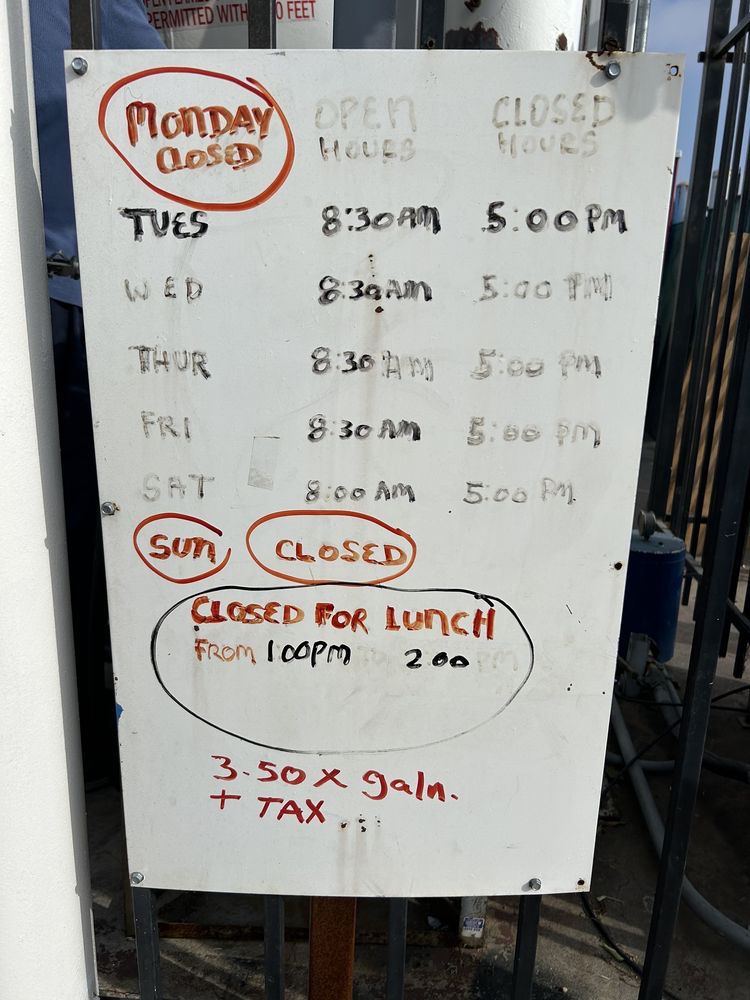 PERMITTED WITH 0 FEET
MONDAY CLOSED
OPEN HOURS
CLOSED HOURS
TUES 8:30 AM 5:00 PM
WED 8:30 AM 5:00 PM
THUR 8:30 AM 5:00 PM
FRI 8:30 AM 5:00 PM
SAT 8:00 AM 5:00 PM
SUN CLOSED
CLOSED FOR LUNCH
FROM 1:00PM TO 2:00 PM
3.50 x galn.
+ TAX